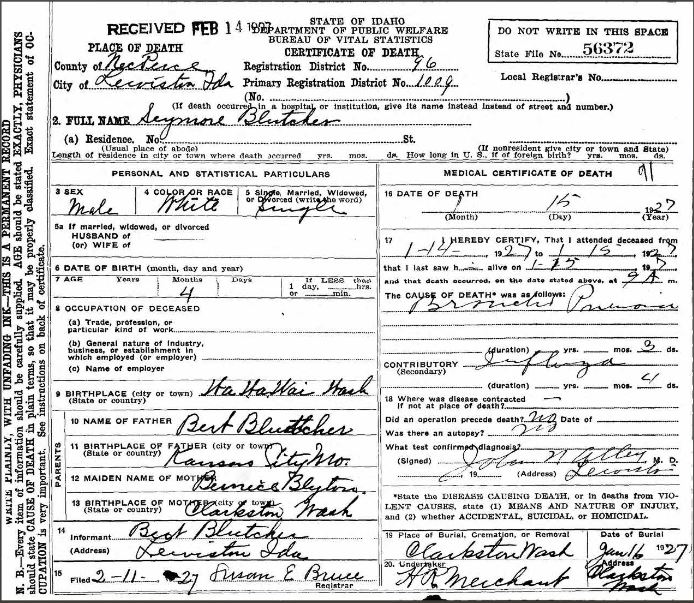 RECEIVED FEB 14 1927
STATE OF IDAHO
DEPARTMENT OF PUBLIC WELFARE
BUREAU OF VITAL STATISTICS
CERTIFICATE OF DEATH
DO NOT WRITE IN THIS SPACE
State File No. 56372
PLACE OF DEATH
County of Nez Perce
City of Lewiston Ida
Registration District No. 96
Primary Registration District No. 1009
Local Registrar's No.
(No.
(If death occurred in a hospital or institution, give its name instead instead of street and number.)
2. FULL NAME Seymore Blutcher
(a) Residence. No. St.
(Usual place of abode) (If nonresident give city or town and State)
Length of residence in city or town where death occurred yrs. mos. ds. How long in U. S., if of foreign birth? yrs. mos. ds.
PERSONAL AND STATISTICAL PARTICULARS
3 SEX Male
4 COLOR OR RACE White
5 Single, Married, Widowed, or Divorced (write the word) Single
5a If married, widowed, or divorced
HUSBAND of
(or) WIFE of
6 DATE OF BIRTH (month, day and year)
7 AGE Years Months Days If LESS than
1 day, hrs.
or min.
4
8 OCCUPATION OF DECEASED
(a) Trade, profession, or
particular kind of work
(b) General nature of industry,
business, or establishment in
which employed (or employer)
(c) Name of employer
9 BIRTHPLACE (city or town) Wa Wa Wai Wash
(State or country)
PARENTS
10 NAME OF FATHER Bert Bluttcher
11 BIRTHPLACE OF FATHER (city or town)
(State or country) Kansas City Mo.
12 MAIDEN NAME OF MOTHER Bernice Blyton
13 BIRTHPLACE OF MOTHER (city or town)
(State or country) Clarkston Wash
14
Informant Bert Blutcher
(Address) Lewiston Ida
15
Filed 2-11- 27 Susan E Bruce
Registrar
MEDICAL CERTIFICATE OF DEATH 91
16 DATE OF DEATH
1 15 1927
(Month) (Day) (Year)
17 I HEREBY CERTIFY, That I attended deceased from
1-14- 1927 to 1-15 1927
that I last saw h alive on 1-15 1927
and that death occurred, on the date stated above, at 9 A m.
The CAUSE OF DEATH* was as follows:
Bronchial Pneumonia
(duration) yrs. mos. 3 ds.
CONTRIBUTORY Influenza
(Secondary)
(duration) yrs. mos. 4 ds.
18 Where was disease contracted
if not at place of death?
Did an operation precede death? No Date of
Was there an autopsy? No
What test confirmed diagnosis?
(Signed) John N Alley M. D.
, 19 (Address) Lewiston
*State the DISEASE CAUSING DEATH, or in deaths from VIOLENT CAUSES, state (1) MEANS AND NATURE OF INJURY,
and (2) whether ACCIDENTAL, SUICIDAL, or HOMICIDAL.
19 Place of Burial, Cremation, or Removal Date of Burial
Clarkston Wash Jan 16 1927
20. Undertaker Address
H R Merchant Clarkston Wash
WRITE PLAINLY, WITH UNFADING INK—THIS IS A PERMANENT RECORD
N. B.—Every item of information should be carefully supplied. AGE should be stated EXACTLY, PHYSICIANS
should state CAUSE OF DEATH in plain terms, so that it may be properly classified. Exact statement of OCCUPATION is very important. See instructions on back of certificate.